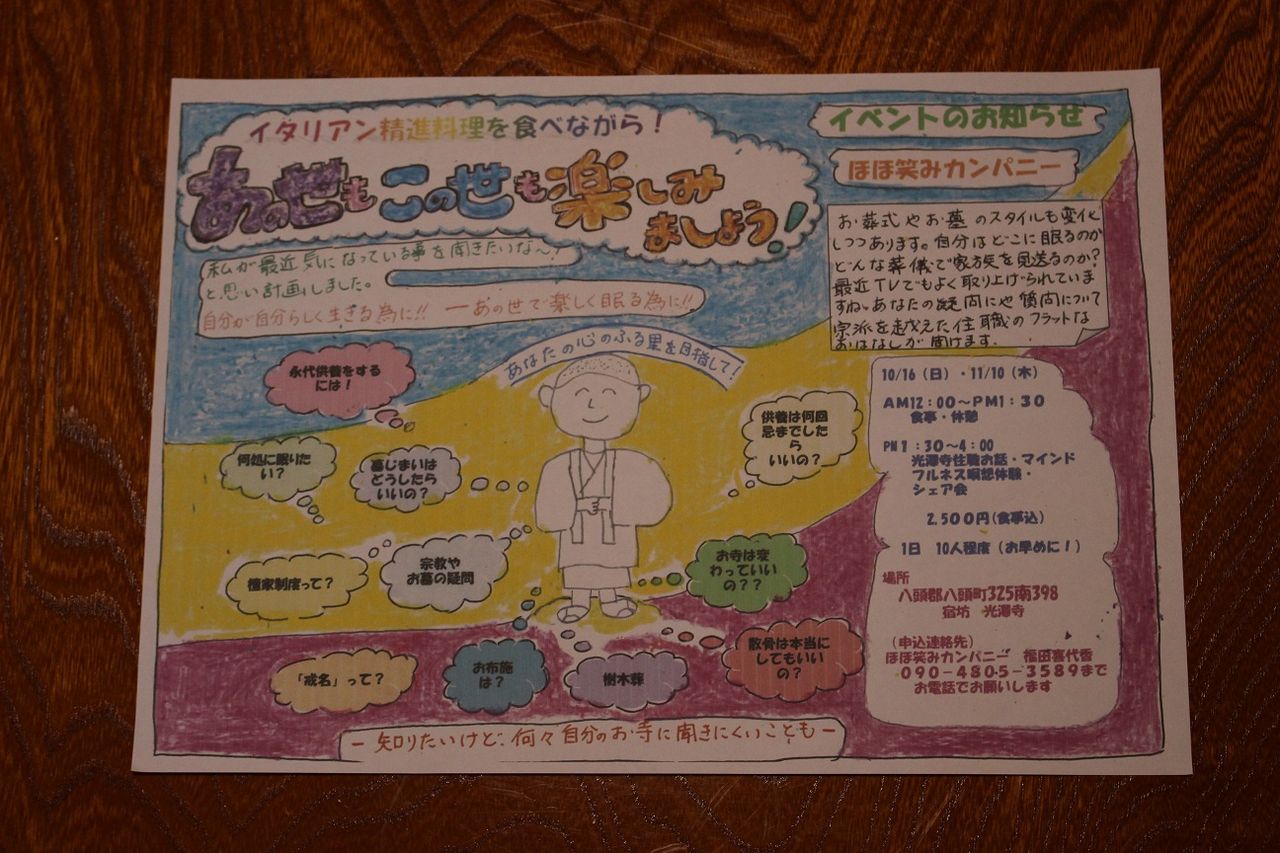 イタリアン精進料理を食べながら！
あの世もこの世も楽しみ
ましょう！
私が最近気になっている事を聞きたいな〜！
と思い計画しました。
自分が自分らしく生きる為に!! ーあの世で楽しく眠る為に!!
イベントのお知らせ
ほほ笑みカンパニー
お葬式やお墓のスタイルも変化
しつつあります。自分はどこに眠るのか
どんな葬儀で家族を見送るのか?
最近TVでもよく取り上げられていま
すね。あなたの疑問にや質問について
宗派を越えた住職のフラットな
おはなしが聞けます。
あなたの心のふる里を目指して！
永代供養をする
には！
何処に眠りた
い？
墓じまいは
どうしたら
いいの？
供養は何回
忌までした
ら
いいの？
檀家制度って？
宗教や
お墓の疑問
お寺は変
わっていい
の？？
「戒名」って？
お布施
は？
樹木葬
散骨は本当に
してもいい
の？
10/16（日）・11/10（木）
AM12：00〜PM1：30
食事・休憩
PM1：30〜4：00
光澤寺住職お話・マインド
フルネス瞑想体験・
シェア会
2,500円(食事込)
1日 10人程度（お早めに！）
場所
八頭郡八頭町325南398
宿坊 光澤寺
（申込連絡先）
ほほ笑みカンパニー 福田喜代香
090-4805-3589まで
お電話でお願いします
－知りたいけど、何々自分のお寺に聞きにくいことも－